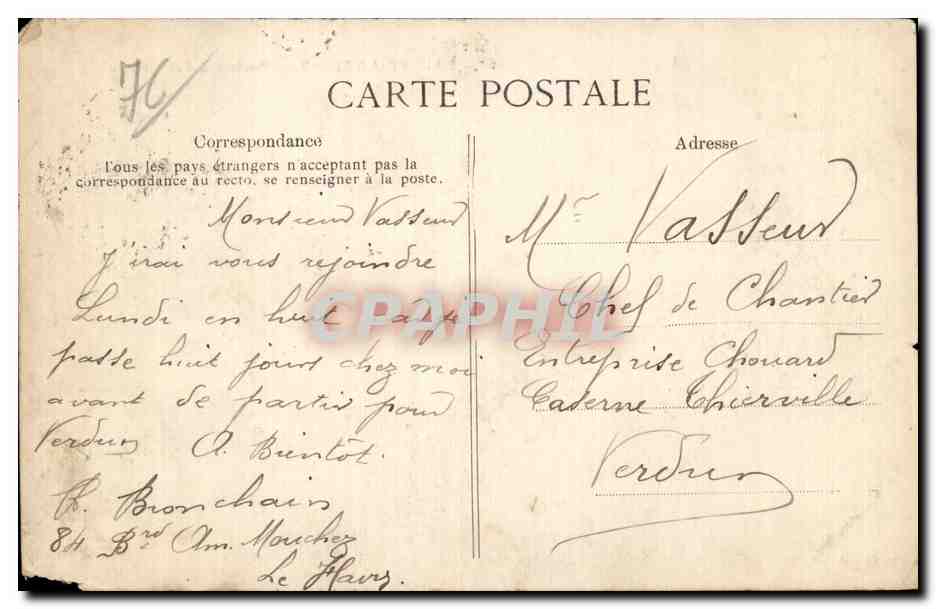 76
CARTE POSTALE
Correspondance
Tous les pays étrangers n'acceptant pas la
correspondance au recto, se renseigner à la poste.
Monsieur Vasseur
J'irai vous rejoindre
Lundi en huit
passe huit jours chez moi
avant de partir pour
Verdun A Bientôt.
Bronchain
84 Brd Am. Mouchez
Le Havre.
Adresse
Mr Vasseur
Chef de Chantier
Entreprise Chouard
Caserne Thierville
Verdun
CPAPHIL